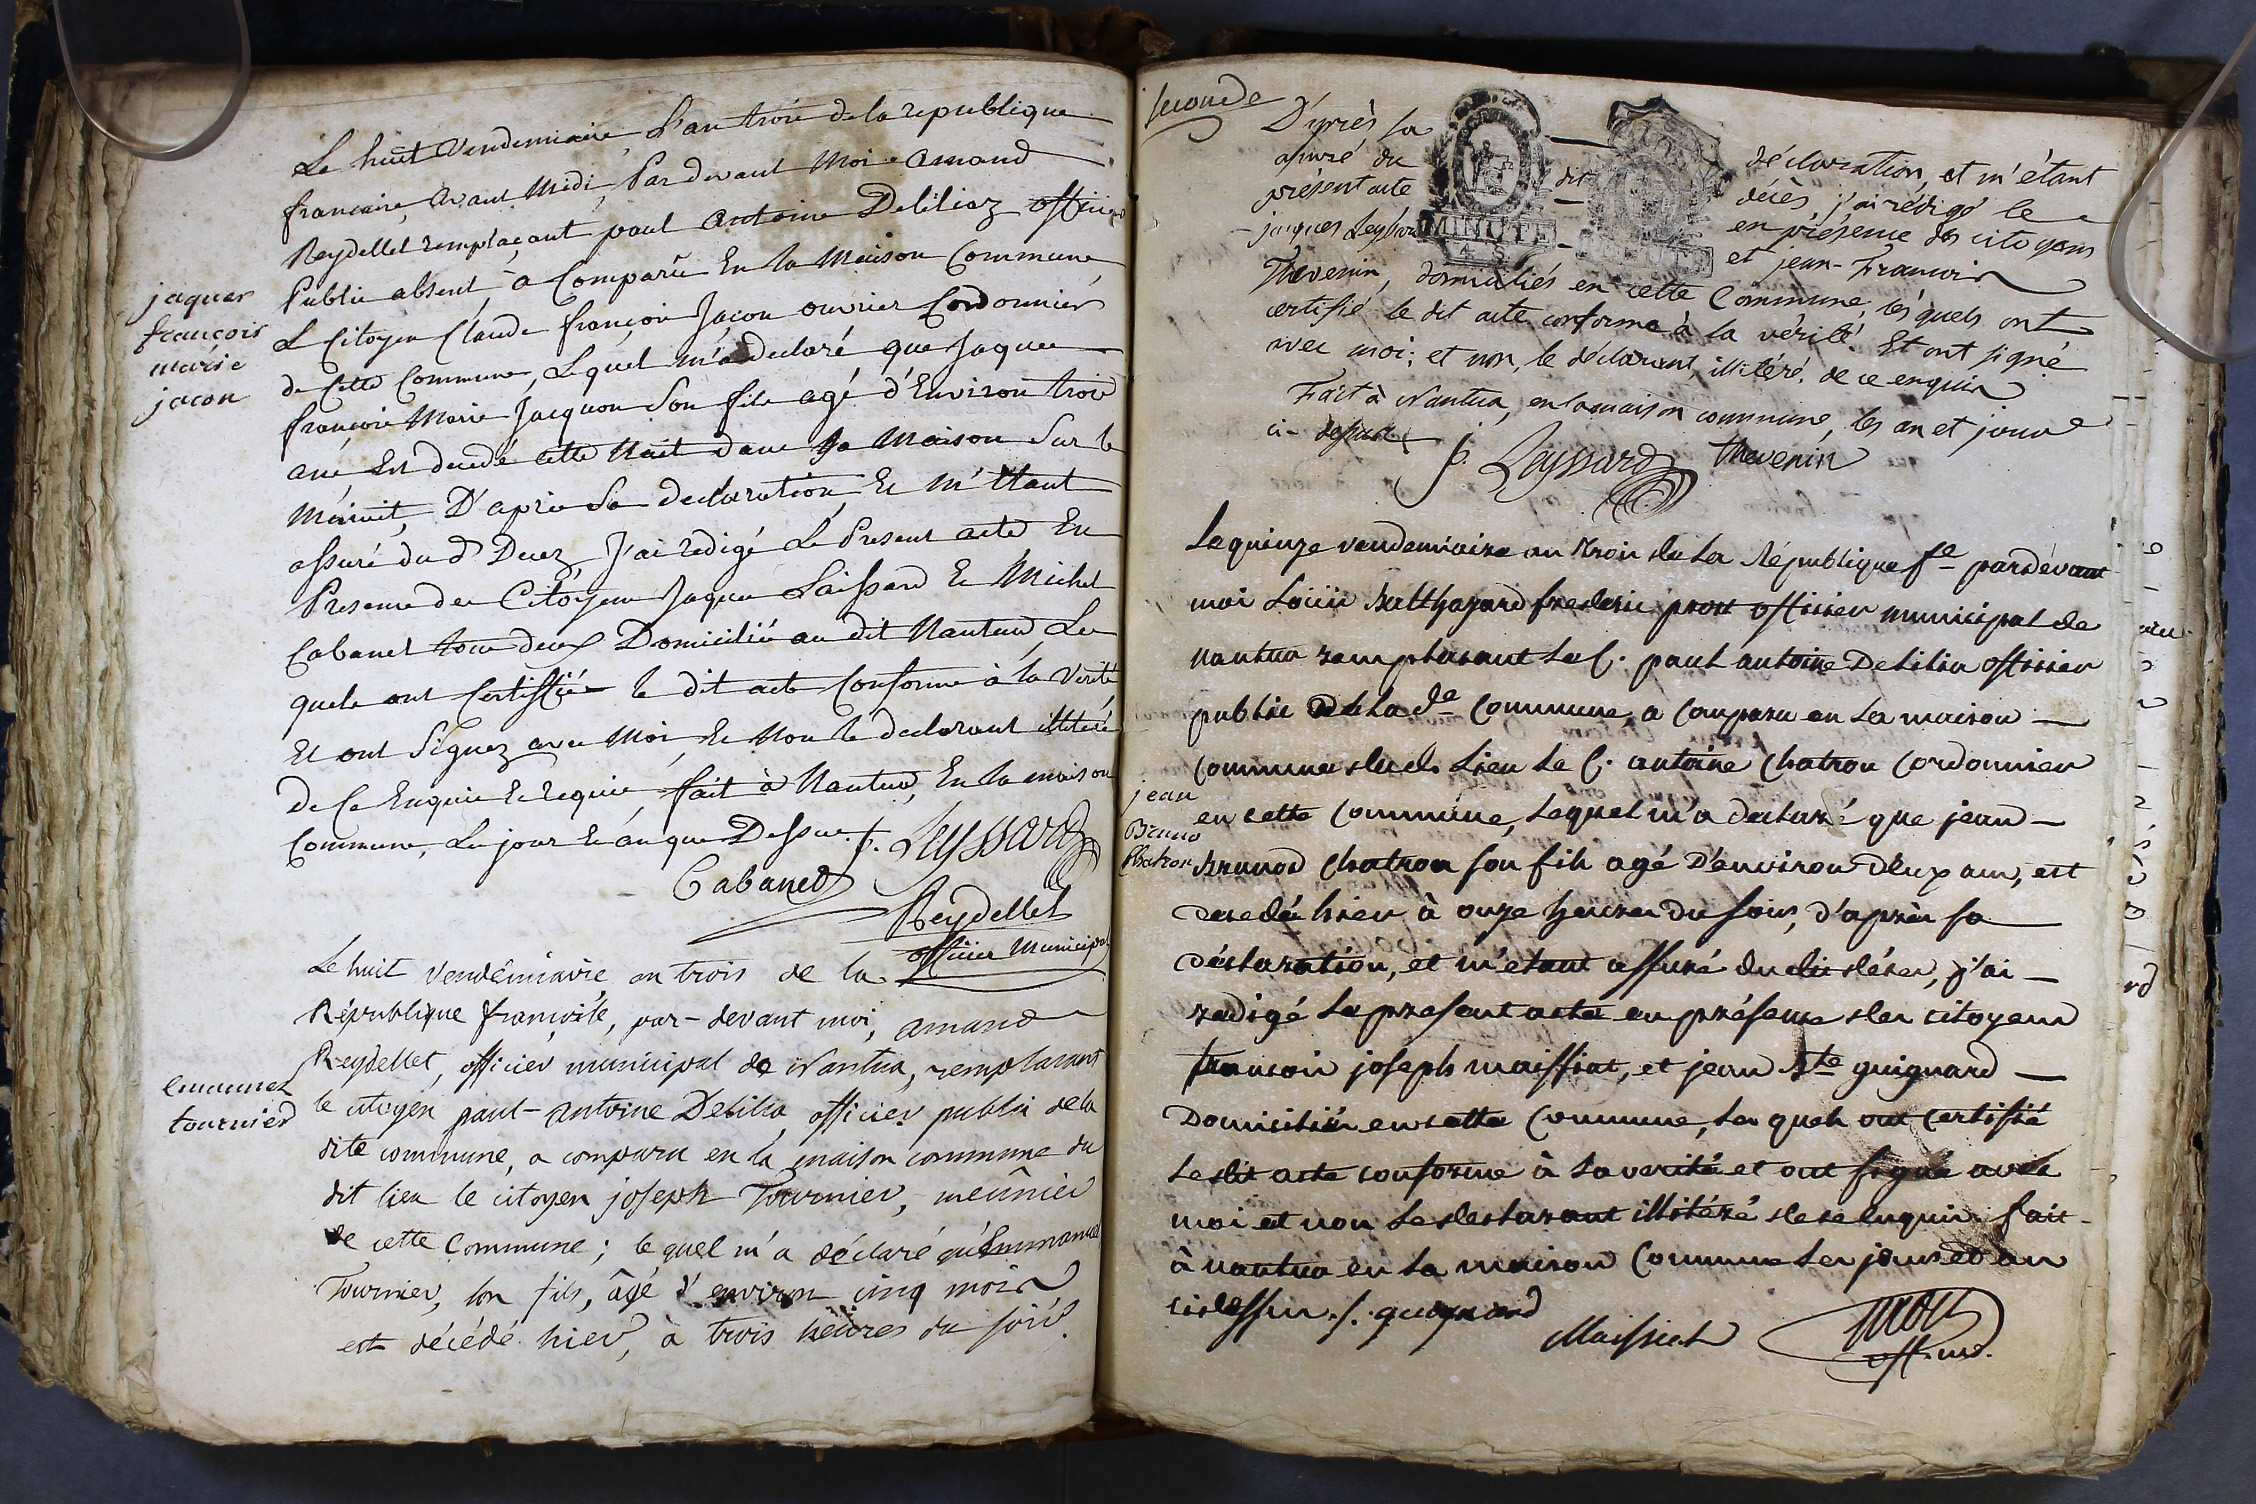 Le huit Vendemiaire L'an trois de la republique
francaise, avant Midi, Par devant Moi amand
Reydellet remplaçant paul antoine Delilia officier
Public absent, a Comparû En la Maison Commune
Le Citoyen Claude françois Jacon ouvrier Cordonnier
de Cette Commune, Lequel m'a declaré que Jaques
françois Marie Jacquon Son fils agé d'Environ trois
ans, Est decedé cette Nuit dans sa Maison Sur le
Minuit, D'après Sa declaration, Et M'étant
assuré du d. Decez, J'ai redigé Le Present acte En
Presence des Citoyens Jaques Laissard Et Michel
Cabanet tous deux Domiciliés au dit Nantua, Les
quels ont Certiffiés le dit acte Conforme à la Verité
Et ont Signez avec Moi, Et Non le declarant illiteré
de Ce Enquis Et requis, fait à Nantua, En la maison
Commune, Les jour Et an que Dessus. j. Leyssard
Cabanet
Reydellet
officier Municipal
jaques
françois
marie
jacon
Le huit Vendémiaire, an trois de la
République françoise, par-devant moi, amand
Reydellet, officier municipal de Nantua, remplacant
le citoyen paul-antoine Delilia, officier public de la
dite commune, a comparu en la maison commune du
dit lieu le citoyen joseph Tournier, meûnier
de cette Commune; le quel m'a déclaré qu'Emmanuel
Tournier, son fils, âgé d'environ cinq mois
est décédé hier, à trois heures du soir.
emmanuel
tournier
seconde
D'après sa déclaration, et m'étant
assuré du dit décès, j'ai rédigé le
présent acte en présence des citoyens
jacques Leyssard et jean-Francois
MINUTE
4 S
Thevenin, domiciliés en cette Commune, les quels ont
certifié le dit acte conforme à la vérité. Et ont signé
avec moi; et non, le déclarant, illitéré, de ce enquis
Fait à Nantua, en la maison commune, les an et jour
ci-dessus. j. Leyssard Thevenin
Le quinze vendemiaire an trois de la République fe pardevant
moi Louis Balthazard frederic prost officier municipal de
nantua remplacant le C. paul antoine Delilia officier
public de la de Commune, a comparu en la maison
Commune dud. Lieu le C. antoine Chatron Cordonnier
en cette Commune, Lequel m'a declaré que jean
brunod Chatron son fils agé D'environ deux ans, est
decedé hier à onze heures du soir, d'après sa
déclaration, et m'etant assuré du dit décès, j'ai
redigé le present acte en présence des citoyens
francois joseph maissiat, et jean Bte guignard
Domiciliés en cette Commune, les quels ont certifié
le dit acte conforme à la verité et ont signé avec
moi et non le declarant illitéré de ce enquis. fait
à nantua en la maison Commune les jour et an
cidessus. j. guignard
Maissiat
prost
off. md.
jean
Bruno
Chatron